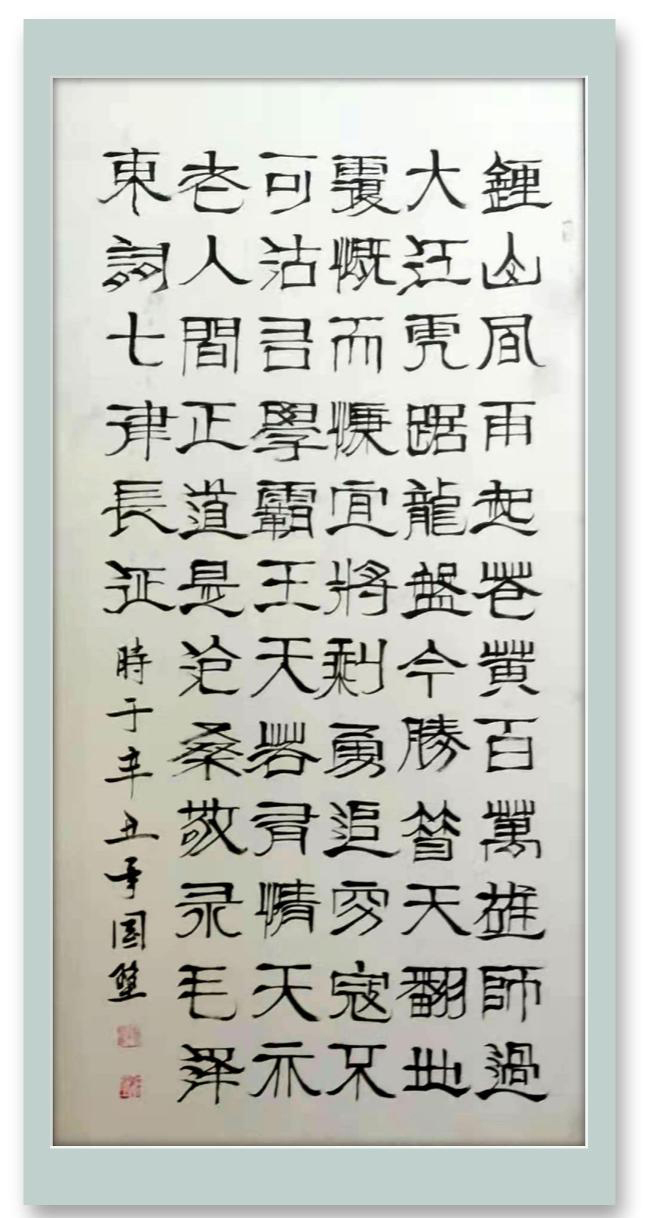 鍾山風雨起苍黃百萬雄師過
大江虎踞龍盤今勝昔天翻地
覆慨而慷宜將剩勇追穷寇不
可沽名學霸王天若有情天亦
老人間正道是沧桑敬录毛泽
東詞七律長征時于辛丑年國